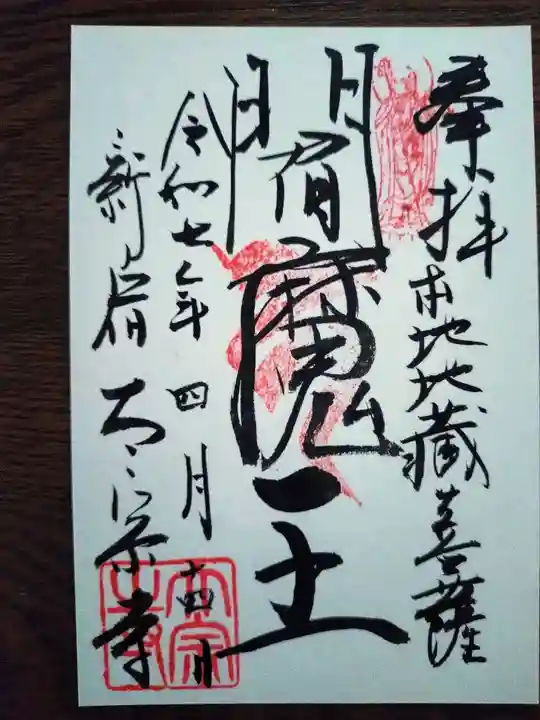 奉拝
本地地蔵菩薩
閻魔王
令和七年四月十四日
新宿太宗寺
太宗寺